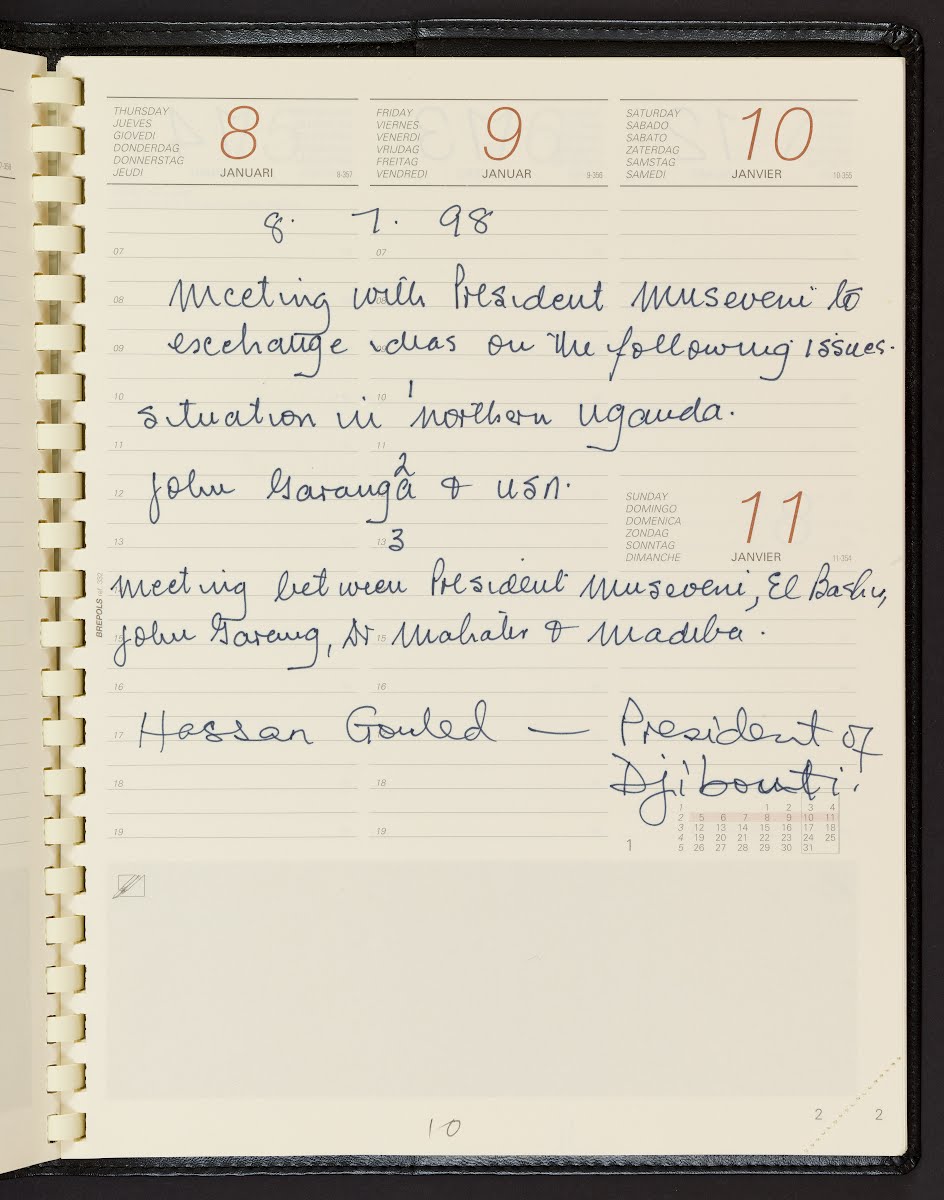 THURSDAY
JUEVES
GIOVEDI
DONDERDAG
DONNERSTAG
JEUDI
8
JANUARI
8-357
FRIDAY
VIERNES
VENERDI
VRIJDAG
FREITAG
VENDREDI
9
JANUAR
9-356
SATURDAY
SABADO
SABATO
ZATERDAG
SAMSTAG
SAMEDI
10
JANVIER
10-355
8. 7. 98
07 07
Meeting with President Museveni to
08 08
exchange ideas on the following issues.
09
1
10 10
situation in northern Uganda.
11 11
2
John Garang & USA.
12
3
13 13
SUNDAY
DOMINGO
DOMENICA
ZONDAG
SONNTAG
DIMANCHE
11
JANVIER
11-354
Meeting between President Museveni, El Bashir,
BREPOLS
John Garang, Dr Mahatir & Madiba.
15 15
16 16
Hassan Gouled — President of
17
Djibouti.
18 18
19 19
1
1 1 2 3 4
2 5 6 7 8 9 10 11
3 12 13 14 15 16 17 18
4 19 20 21 22 23 24 25
5 26 27 28 29 30 31
2 2
10